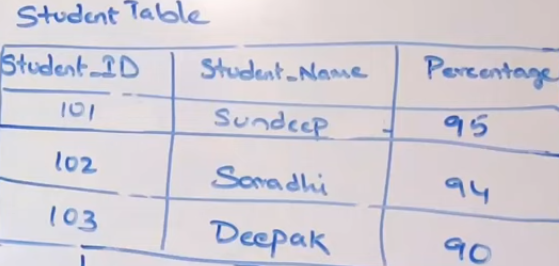 Student Table
Student_ID Student_Name Percentage
101 Sundeep 95
102 Saradhi 94
103 Deepak 90